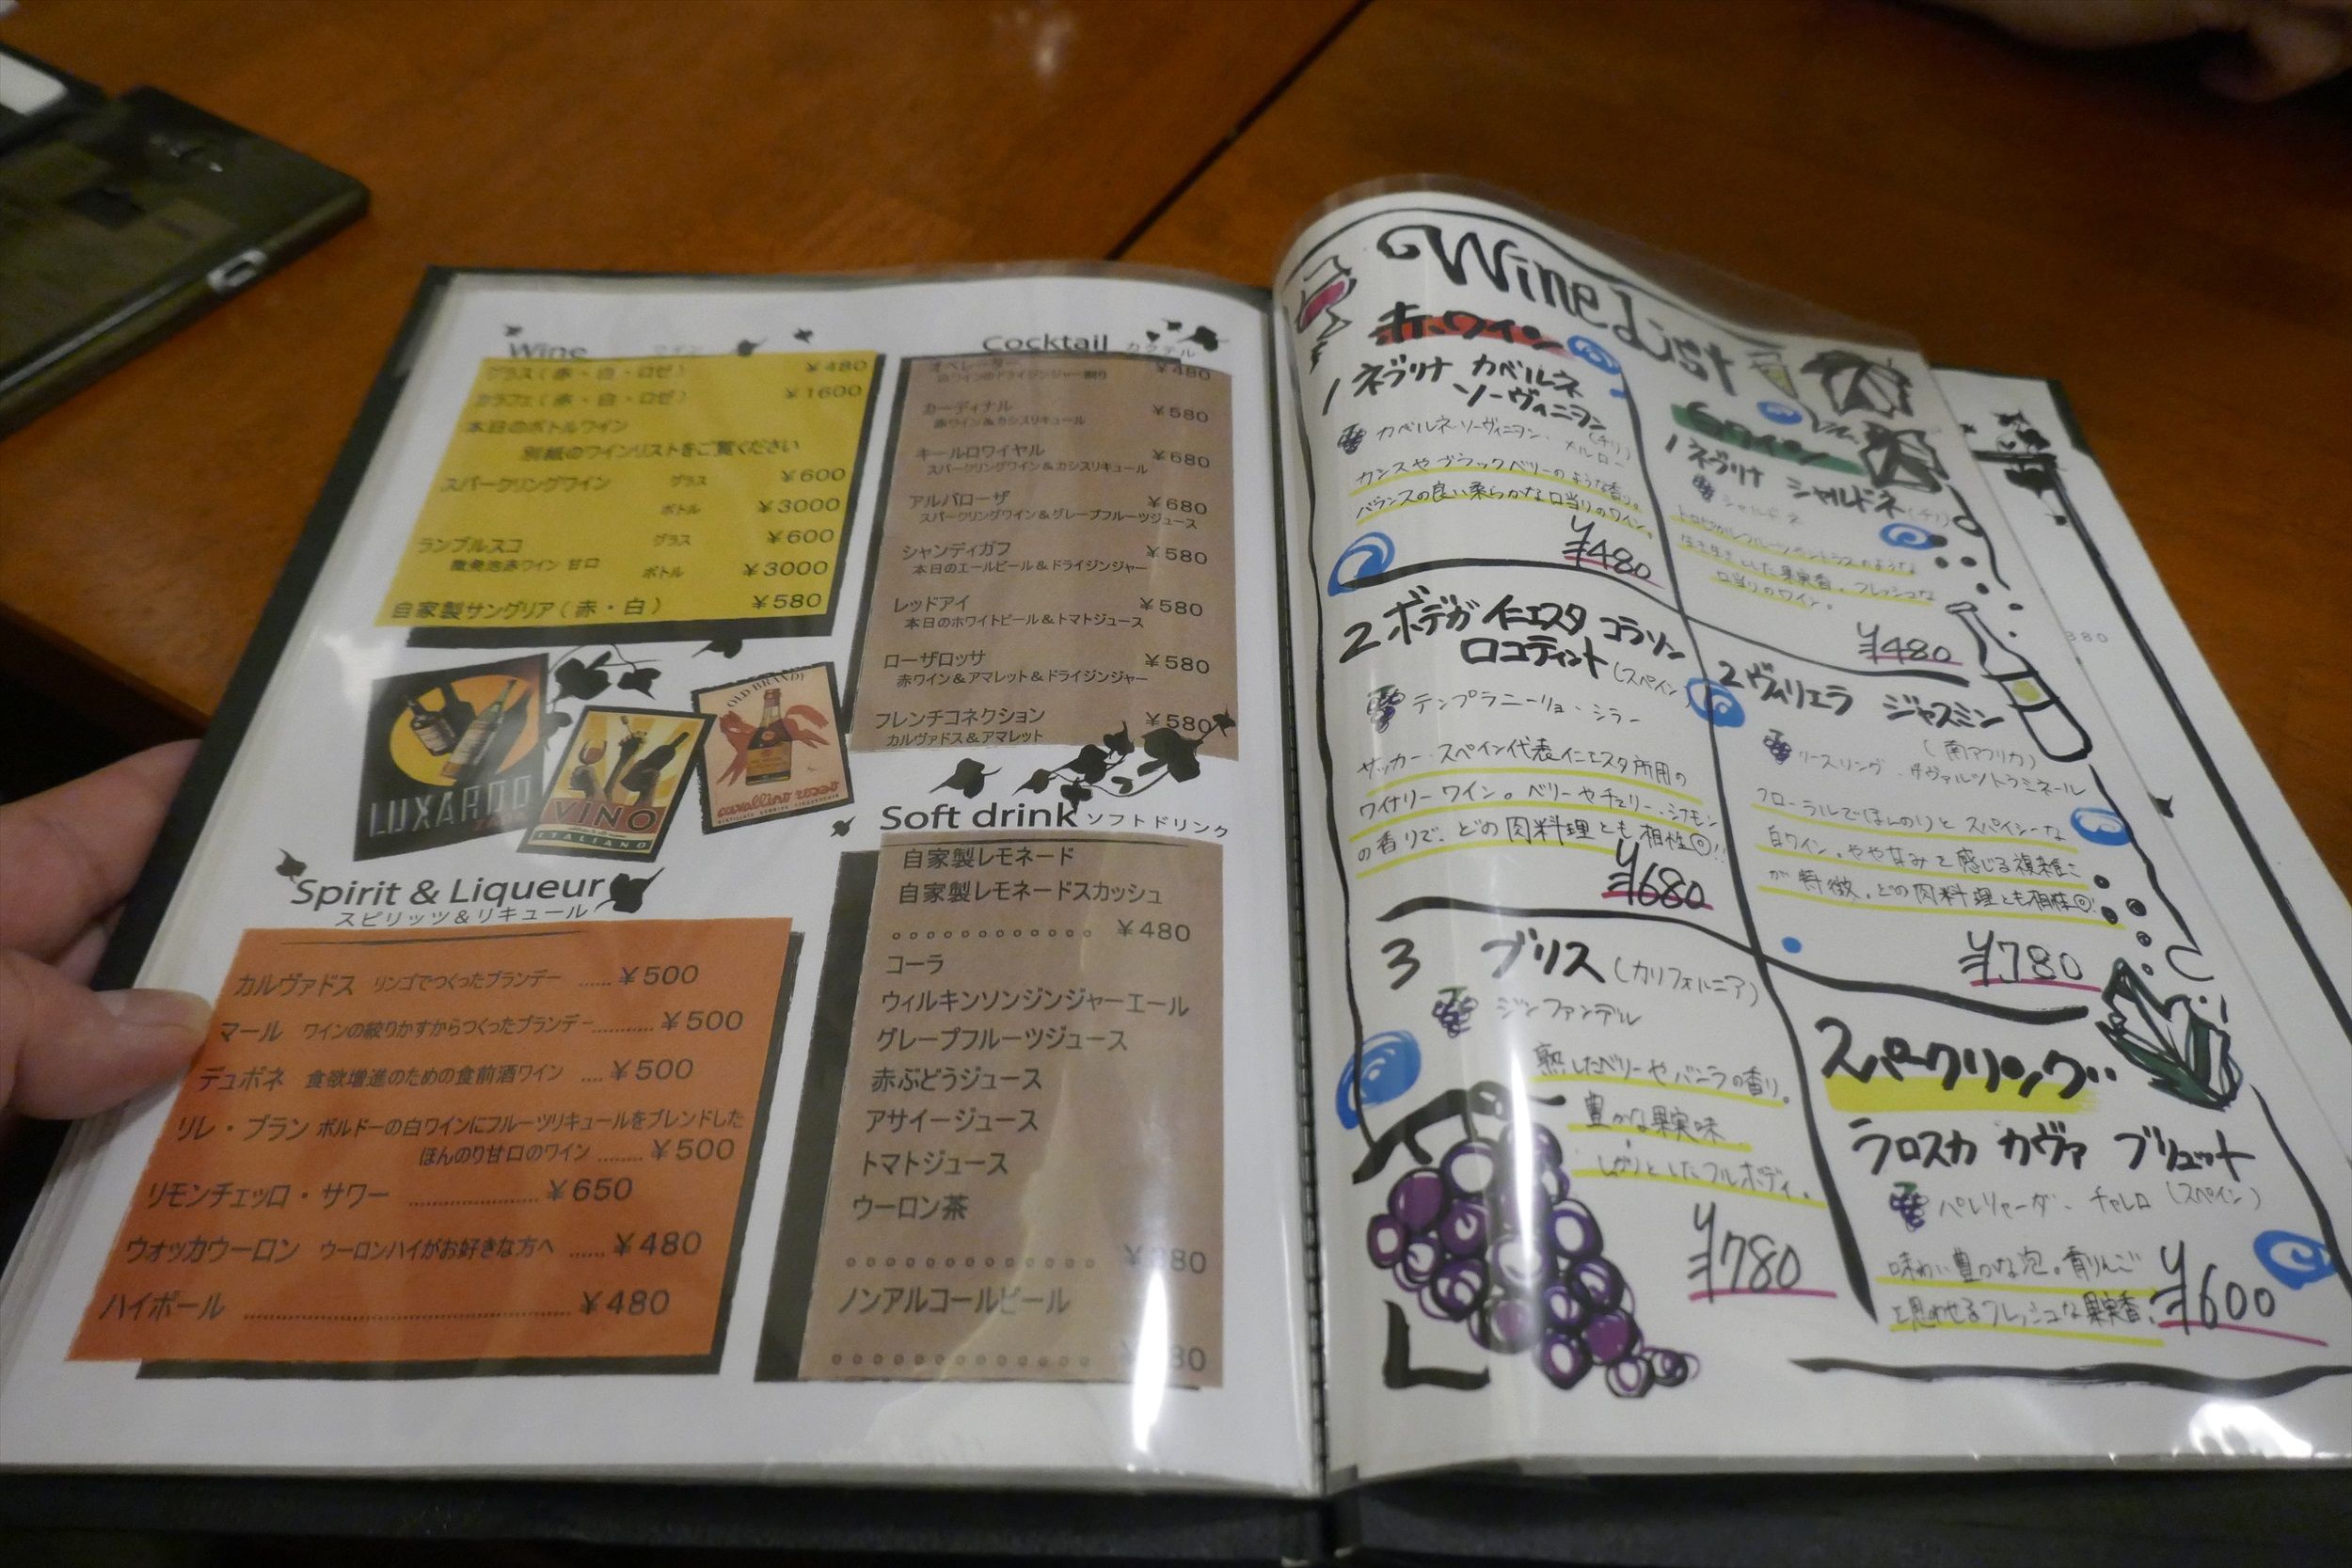 Wine ワイン
グラス(赤・白・ロゼ) ¥480
カラフェ(赤・白・ロゼ) ¥1600
本日のボトルワイン
別紙のワインリストをご覧ください
スパークリングワイン グラス ¥600
ボトル ¥3000
ランブルスコ グラス ¥600
微発泡赤ワイン 甘口 ボトル ¥3000
自家製サングリア(赤・白) ¥580
LUXARDO
VINO
ITALIANO
OLD BRANDY
cavallino rosso
Spirit & Liqueur
スピリッツ&リキュール
カルヴァドス リンゴでつくったブランデー ...... ¥500
マール ワインの絞りかすからつくったブランデー........... ¥500
デュボネ 食欲増進のための食前酒ワイン .... ¥500
リレ・ブラン ボルドーの白ワインにフルーツリキュールをブレンドした
ほんのり甘口のワイン ........ ¥500
リモンチェッロ・サワー ...................... ¥650
ウォッカウーロン ウーロンハイがお好きな方へ ...... ¥480
ハイボール ........................................ ¥480
Cocktail カクテル
オペレーター ¥480
白ワインのドライジンジャー割り
カーディナル ¥580
赤ワイン&カシスリキュール
キールロワイヤル ¥680
スパークリングワイン&カシスリキュール
アルバローザ ¥680
スパークリングワイン&グレープフルーツジュース
シャンディガフ ¥580
本日のエールビール&ドライジンジャー
レッドアイ ¥580
本日のホワイトビール&トマトジュース
ローザロッサ ¥580
赤ワイン&アマレット&ドライジンジャー
フレンチコネクション ¥580
カルヴァドス&アマレット
Soft drink ソフトドリンク
自家製レモネード
自家製レモネードスカッシュ
¥480
コーラ
ウィルキンソンジンジャーエール
グレープフルーツジュース
赤ぶどうジュース
アサイージュース
トマトジュース
ウーロン茶
ノンアルコールビール
Wine List
赤ワイン
1 ネブリナ カベルネ
ソーヴィニヨン
(チリ)
カベルネ・ソーヴィニヨン・メルロー
カシスやブラックベリーのような香り。
バランスの良い柔らかな口当りのワイン。
¥480
2 ボデガ イニエスタ コラソン
ロコ ティント (スペイン)
テンプラニーリョ・シラー
サッカー・スペイン代表イニエスタ所有の
ワイナリーワイン。ベリーやチェリー・シナモン
の香りで、どの肉料理とも相性◎!!
¥680
3 ブリス (カリフォルニア)
ジンファンデル
熟したベリーやバニラの香り。
豊かな果実味
しっかりとしたフルボディ。
¥780
白ワイン
1 ネブリナ シャルドネ (チリ)
シャルドネ
生き生きとした果実香。フレッシュな
口当りのワイン。
¥480
2 ヴィリエラ ジャスミン
(南アフリカ)
リースリング・ゲヴァルツトラミネール
フローラルでほんのりと スパイシーな
白ワイン。やや甘みを感じる複雑さ
が特徴。どの肉料理とも相性◎!
¥780
スパークリング
ラロスカ カヴァ ブリュット
パレリャーダ・チャレロ (スペイン)
味わい豊かな泡。青りんご
を思わせるフレッシュな果実香。
¥600
380